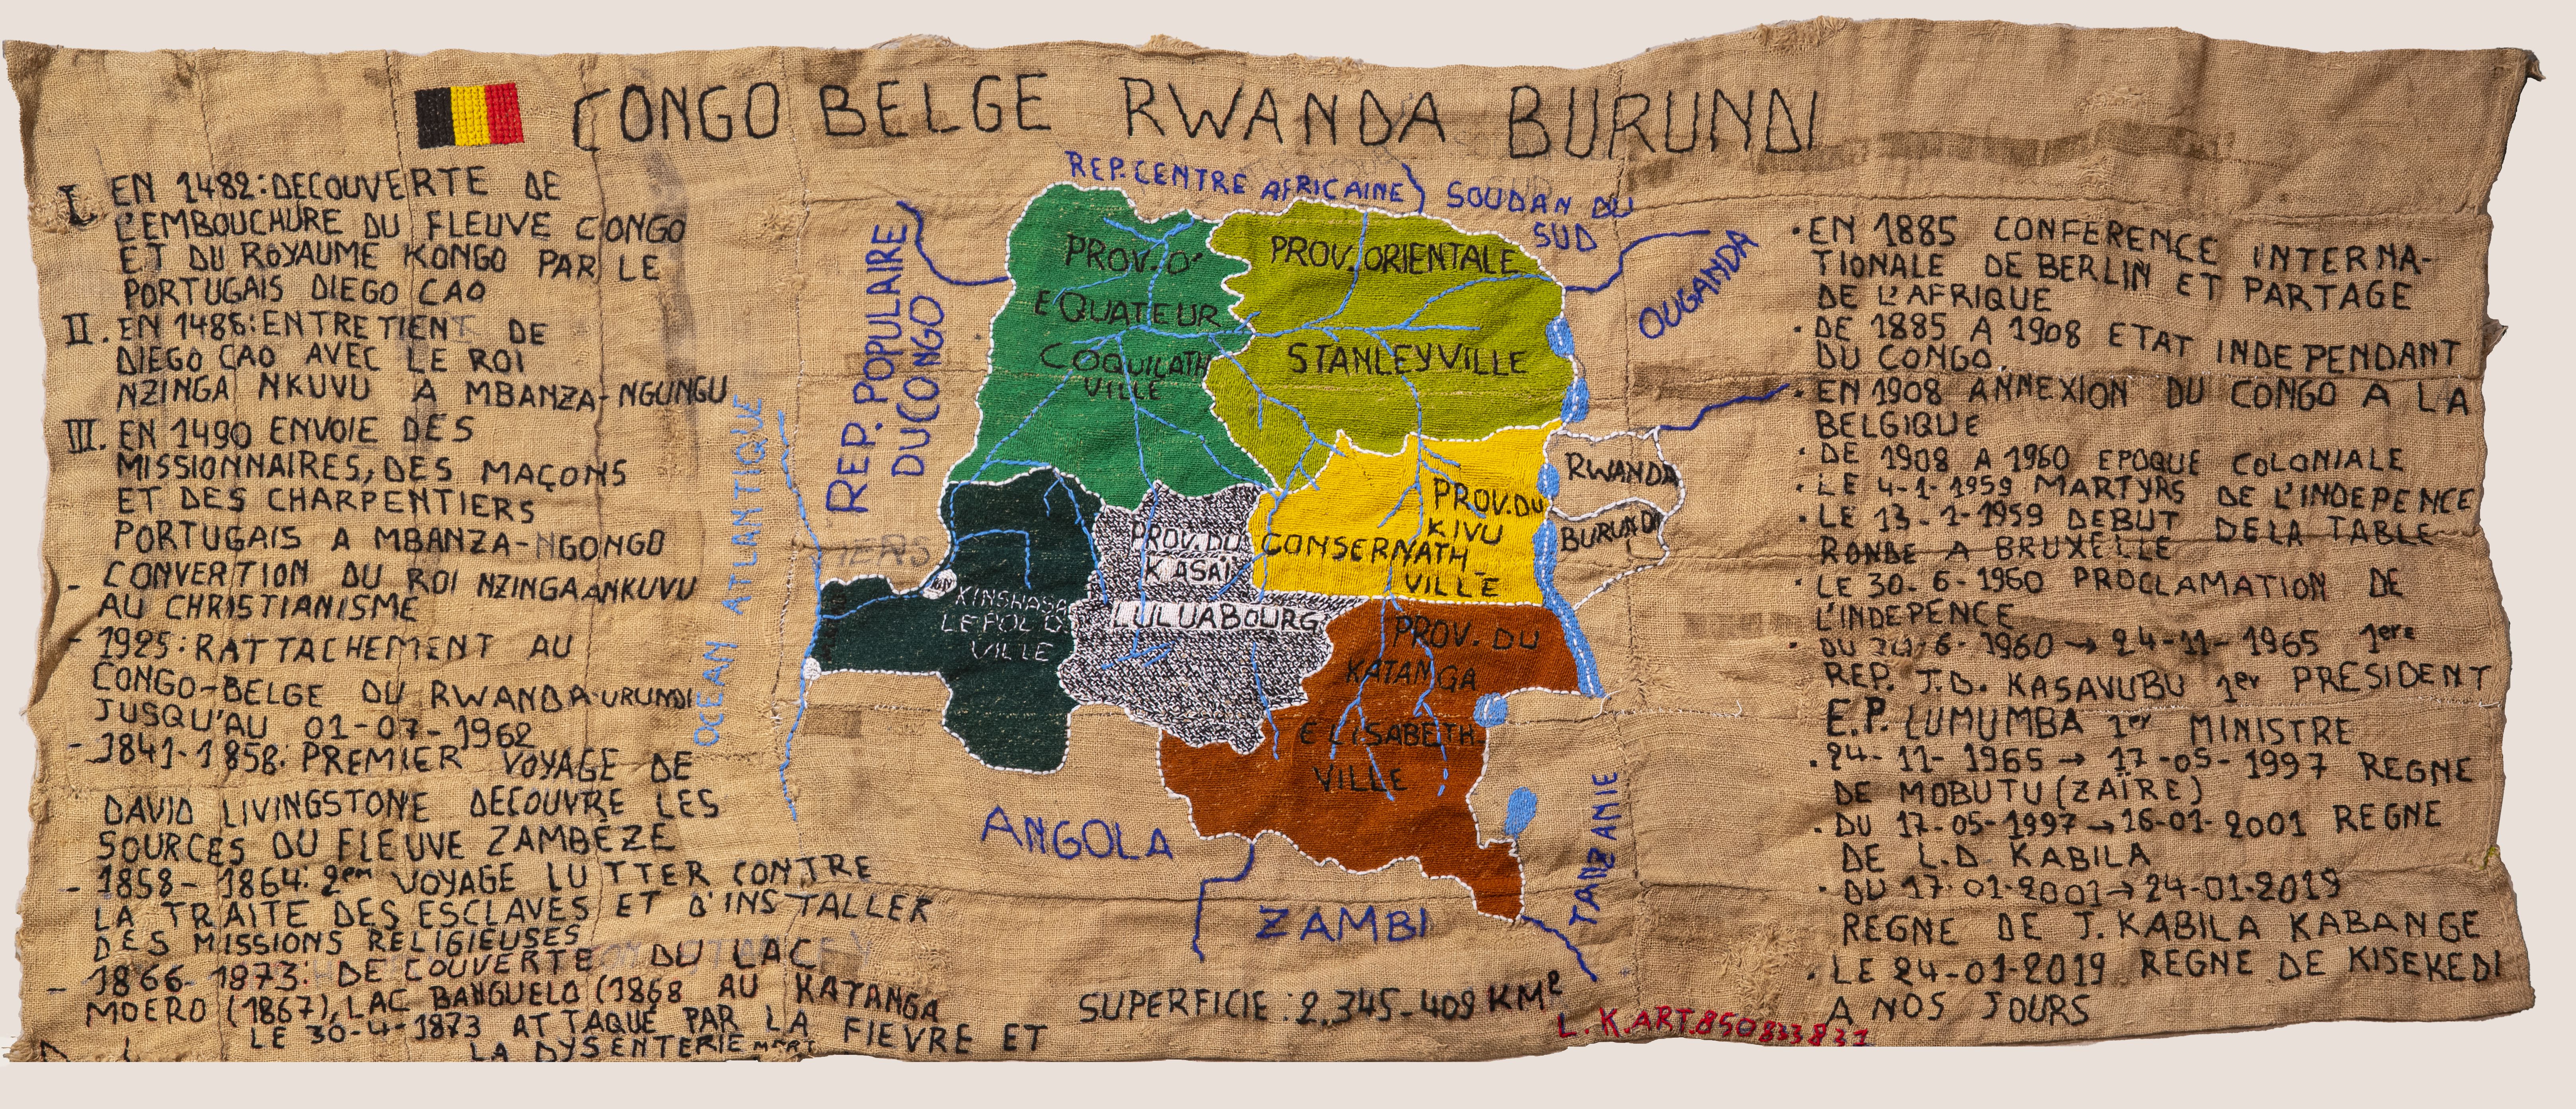 CONGO BELGE RWANDA BURUNDI
I. EN 1482: DECOUVERTE DE
L'EMBOUCHURE DU FLEUVE CONGO
ET DU ROYAUME KONGO PAR LE
PORTUGAIS DIEGO CAO
II. EN 1486: ENTRETIENT DE
DIEGO CAO AVEC LE ROI
NZINGA NKUVU A MBANZA-NGUNGU
III. EN 1490 ENVOIE DES
MISSIONNAIRES, DES MAÇONS
ET DES CHARPENTIERS
PORTUGAIS A MBANZA-NGONGO
- CONVERTION DU ROI NZINGAANKUVU
AU CHRISTIANISME
- 1925: RATTACHEMENT AU
CONGO-BELGE DU RWANDA-URUNDI
JUSQU'AU 01-07-1962
- 1841-1858: PREMIER VOYAGE DE
DAVID LIVINGSTONE DECOUVRE LES
SOURCES DU FLEUVE ZAMBÉZE
- 1858-1864: 2em VOYAGE LUTTER CONTRE
LA TRAITE DES ESCLAVES ET D'INSTALLER
DES MISSIONS RELIGIEUSES
- 1866-1873: DECOUVERTE DU LAC
MOERO (1867), LAC BANGUELO (1868 AU KATANGA
LE 30-4-1873 ATTAQUE PAR LA FIEVRE ET
LA DYSENTERIE MORT
OCEAN ATLANTIQUE
REP. POPULAIRE
DU CONGO
REP. CENTRE AFRICAINE
SOUDAN DU
SUD
OUGANDA
PROV. D'
EQUATEUR
COQUILATH
VILLE
PROV. ORIENTALE
STANLEYVILLE
PROV. DU
KIVU
CONSERNATH
VILLE
RWANDA
BURUNDI
PROV. DU
KASAÏ
LULUABOURG
KIN
KINSHASA
LEPOLD
VILLE
PROV. DU
KATANGA
ELISABETH.
VILLE
ANGOLA
ZAMBI
TANZANIE
SUPERFICIE: 2.345-409 KM2
L.K.ART.850833831
• EN 1885 CONFERENCE INTERNA-
TIONALE DE BERLIN ET PARTAGE
DE L'AFRIQUE
• DE 1885 A 1908 ETAT INDEPENDANT
DU CONGO.
• EN 1908 ANNEXION DU CONGO A LA
BELGIQUE
• DE 1908 A 1960 EPOQUE COLONIALE
• LE 4-1-1959 MARTYRS DE L'INDEPENCE
• LE 13-1-1959 DEBUT DELA TABLE
RONDE A BRUXELLE
• LE 30-6-1960 PROCLAMATION DE
L'INDEPENCE
• DU 6-1960 → 24-11-1965 1ere
REP. J.D. KASAVUBU 1er PRESIDENT
E.P. LUMUMBA 1er MINISTRE
• 24-11-1965 → 17-05-1997 REGNE
DE MOBUTU (ZAÏRE)
• DU 17-05-1997 → 16-01-2001 REGNE
DE L.D KABILA
• DU 17-01-2001 → 24-01-2019
REGNE DE J. KABILA KABANGE
• LE 24-01-2019 REGNE DE KISEKEDI
A NOS JOURS